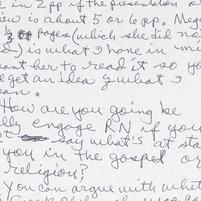 in 2 pp if the presentation o
ew is about 5 or 6 pp. Meg
1/2 pages (which she did no
) is what I have in mi
ant her to read it so yo
get an idea of what I
ean.
How are you going be
lly engage RN if you
say what's at sta
you in the gospel or
religion?
You can argue with what